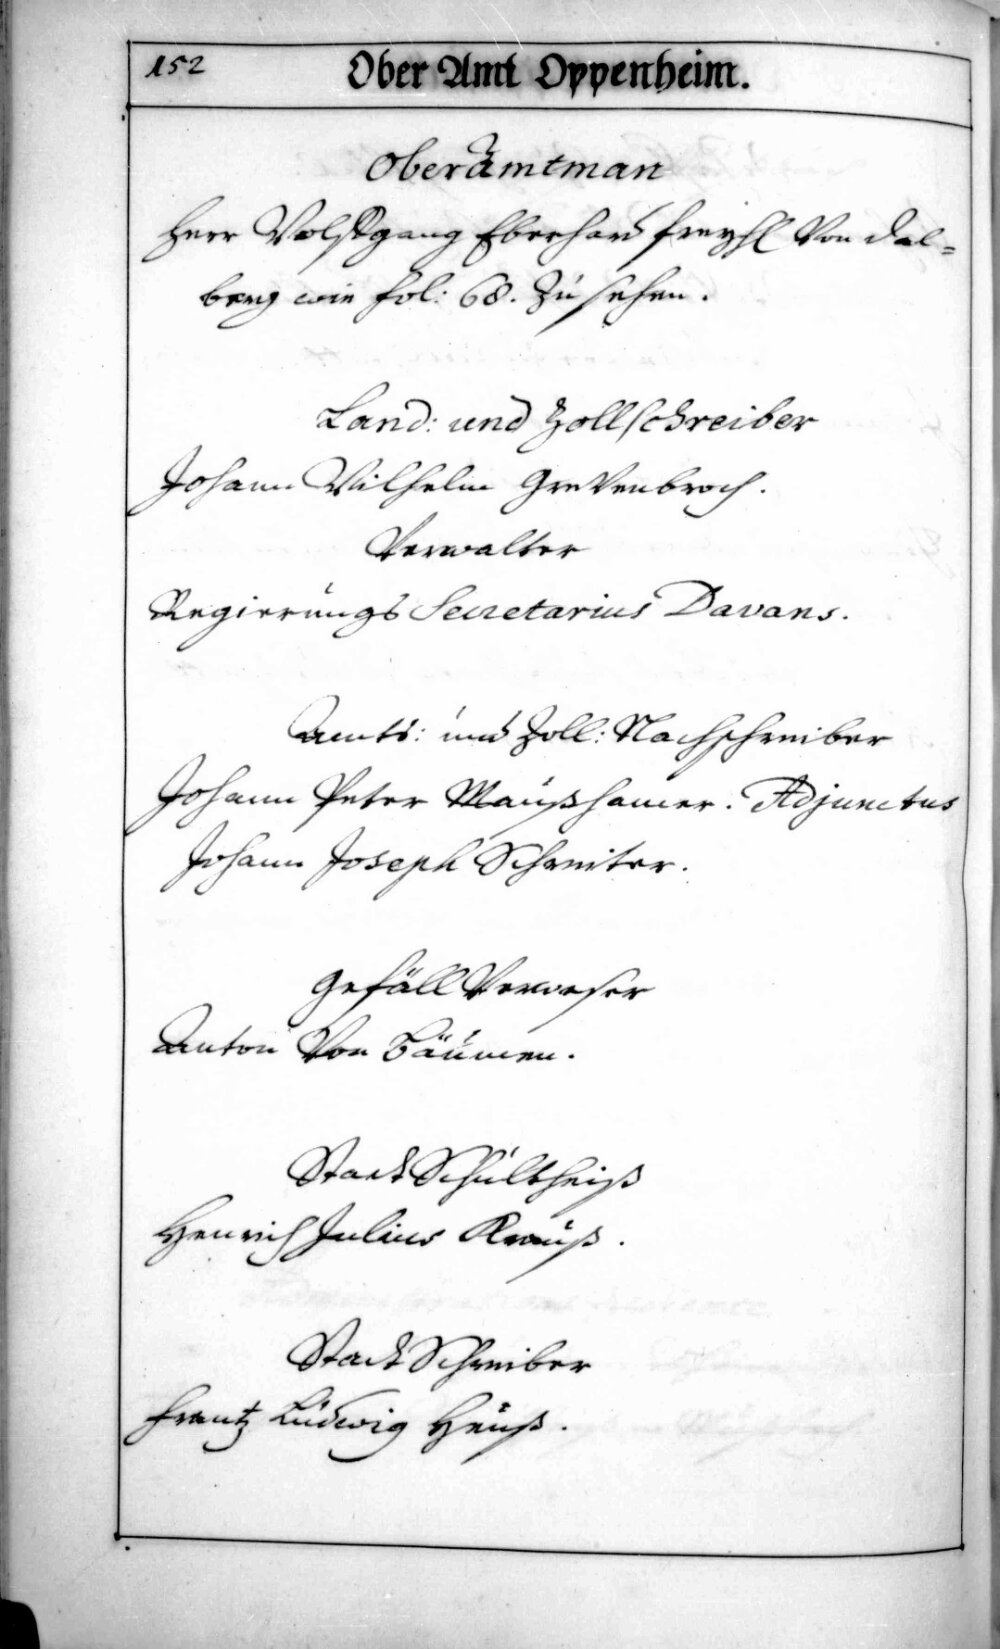 152
Ober Amt Oppenheim.
Oberamtman
Herr Wolffgang Eberhard freyh. Von Dal=
berg wie fol: 68. zu sehen.
Land: und Zollschreiber
Johann Wilhelm Grevenbroch.
Verwalter
Regierungs Secretarius Davans.
Amts: und Zoll: Nachschreiber
Johann Peter Maußhamer. Adjunctus
Johann Joseph Schreiter.
Gefäll Verweser
Anton Von Bäumen.
Stadt Schultheiß
Henrich Julius Krauß.
Stadt Schreiber
Frantz Ludwig Heuß.